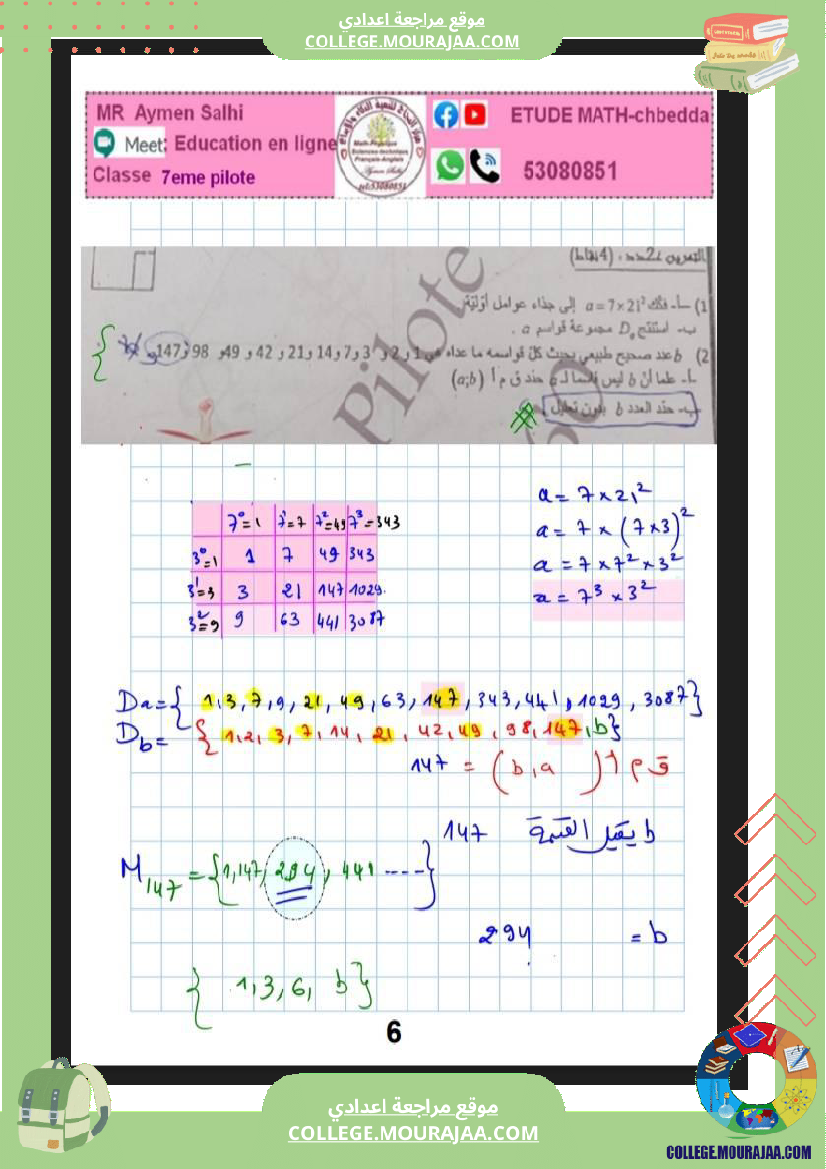 موقع مراجعة اعدادي
COLLEGE.MOURAJAA.COM
MR Aymen Salhi
Meet: Education en ligne
Classe 7eme pilote
ETUDE MATH-chbedda
53080851
التمرين 2عدد : (4نقاط)
1) أ- فكّك a = 7 × 21² إلى جذاء عوامل أوّليّة
ب- استنتج Dₐ مجموعة قواسم a .
2) b عدد صحيح طبيعي بحيث كلّ قواسمه ما عداه هي 1 و 2 و 3 و 7 و 14 و 21 و 42 و 49 و 98 و 147
أ- علما أنّ b ليس قاسما لـ a حدّد ق م أ (a;b)
ب- حدّد العدد b بدون تعليل .
Pilote
a = 7 × 21²
a = 7 × (7×3)²
a = 7 × 7² × 3²
a = 7³ × 3²
7⁰=1 7¹=7 7²=49 7³=343
3⁰=1 1 7 49 343
3¹=3 3 21 147 1029
3²=9 9 63 441 3087
Da={1,3,7,9,21,49,63,147,343,441,1029,3087}
D_b={1,2,3,7,14,21,42,49,98,147,b}
147 = (b,a) ق م أ
b يقبل القسمة 147
M₁₄₇={1,147,294,441 ----}
294 = b
{1,3,6, b}
6
موقع مراجعة اعدادي
COLLEGE.MOURAJAA.COM
COLLEGE.MOURAJAA.COM